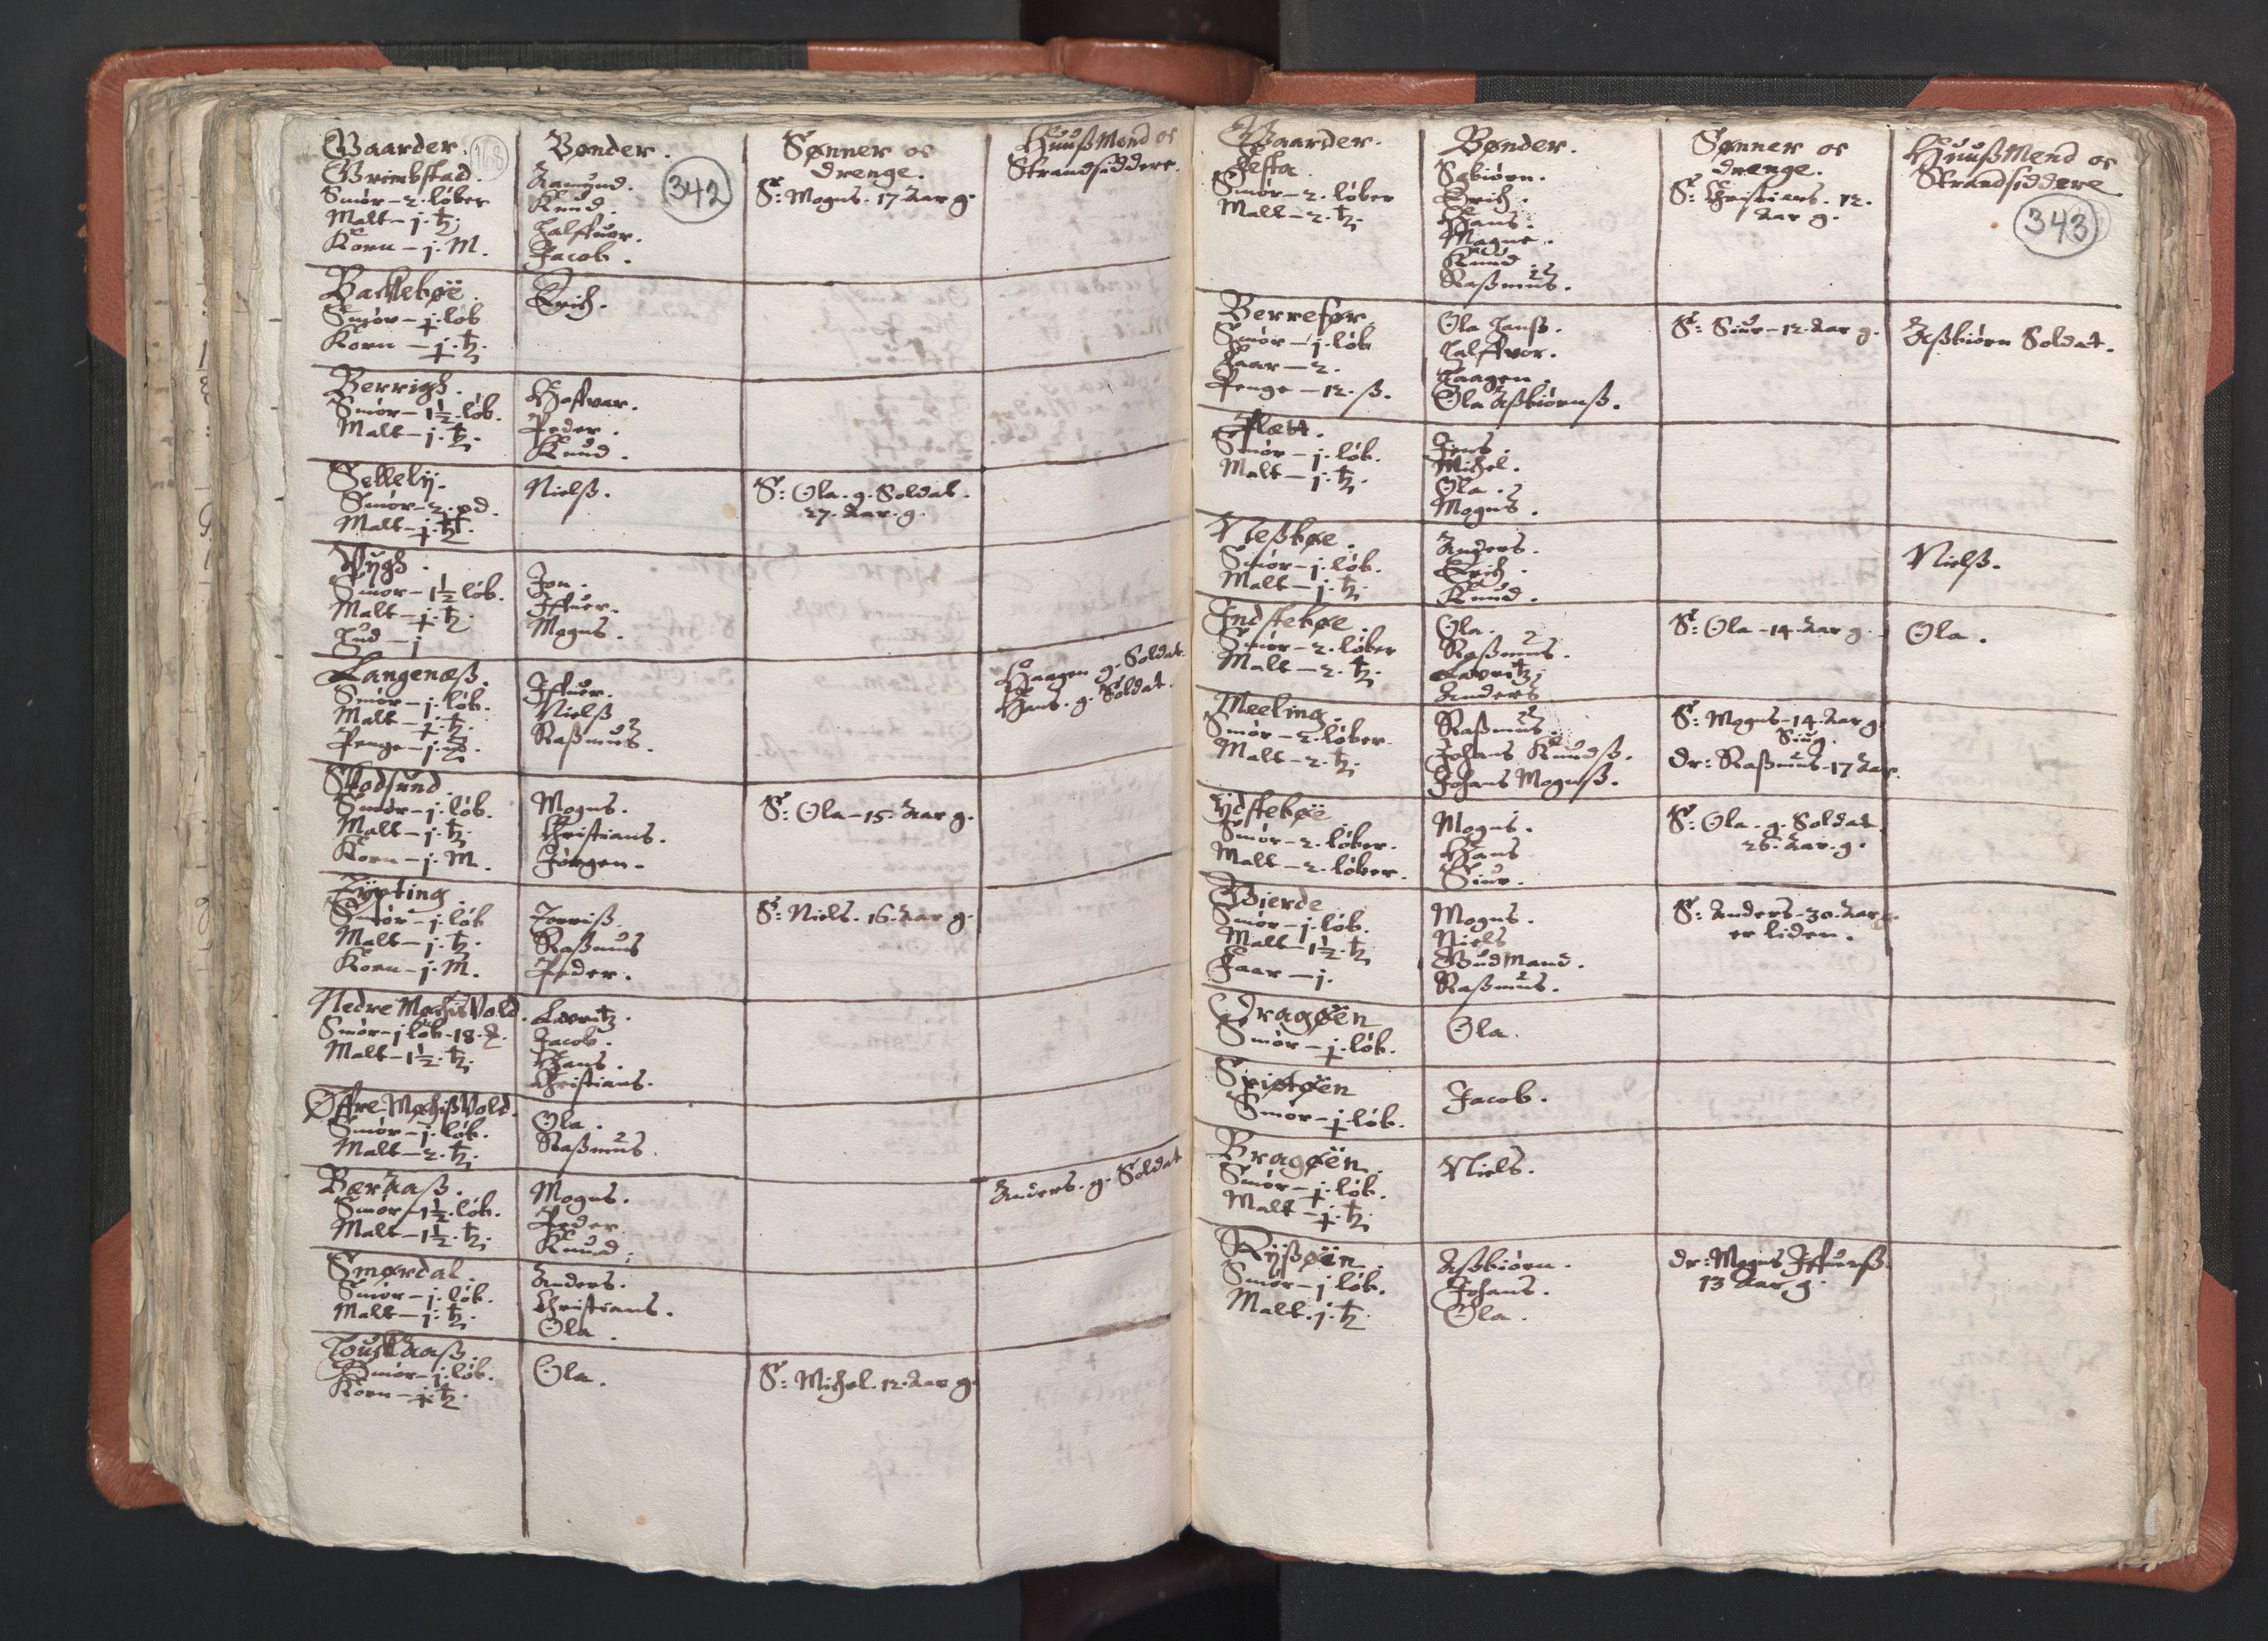 Gaarder.
Bønder.
Sønner oc
drenge.
HuußMend oc
Strandsiddere.
168
342
Grimbstad.
Smør – 2. løber
Malt – j. tz.
Korn – j. M.
Aamund.
Knud.
Halffuor.
Jacob.
S: Mogns. 17. Aar g.
Backebøe.
Smør – j. løb
Korn – j. tz.
Erich.
Berrigh.
Smør – 1½. løb.
Malt – j. tz.
Haffvar.
Peder.
Knud.
Sellely.
Smør – 2. pd.
Malt – j. tz.
Nielß.
S: Ola. g. Soldat.
27. Aar. g.
Vygh.
Smør – 1½ løb.
Malt – j. tz.
Hud – j
Jon.
Iffuer.
Mogns.
Langenæß.
Smør – j. løb.
Malt – j. tz.
Penge – j.
Iffuer.
Nielß
Raßmus.
Haagen g. Soldat.
Hans. g. Soldat.
Skodsund.
Smør – j. løb.
Malt – j. tz.
Korn – j. M.
Mogns.
Christians.
Jørgen –
S: Ola – 15. Aar g.
Typting.
Smør – j. løb
Malt – j. tz.
Korn – j. M.
Torriß.
Raßmus
Peder.
S: Niels. 16. Aar g.
Nedre MøchisVold.
Smør – j løb – 18.
Malt – 1½. tz.
Lavritz.
Jacob.
Hans.
Christians.
Øffre MøchißVold.
Smør – j. løb.
Malt – 2. tz.
Ola.
Raßmus.
Bæraaß.
Smør – 1½. løb.
Malt – 1½. tz.
Mogns.
Peder
Knud.
Anders. g. Soldat
Smørdal.
Smør – j. løb.
Malt – j. tz.
Anders.
Christians.
Ola.
Smør – j. løb.
Korn – j. tz.
Ola.
S: Michel. 12. Aar g.
Gaarder.
Bønder.
Sønner oc
drenge.
HuußMend oc
Strandsiddere
343
Festa.
Smør – 2. løber
Malt – 2. tz.
Sebiørn.
Erich.
Hans.
Magne.
Knud.
Raßmus.
S: Christians. 12.
Aar g.
Berrefør.
Smør – j. løb
Faar – 2.
Penge – 12. ß.
Ola Hanß.
Halffvor.
Haagen.
Ola Aßbiørnß.
S: Siur – 12. Aar g.
Aßbiørn Soldat.
Flætt.
Smør – j. løb.
Malt – j. tz.
Jens.
Michel.
Ola.
Mogns.
Neßbøe.
Smør – j. løb.
Malt – j. tz.
Anders.
Erich.
Knud.
Nielß.
Indstebøe.
Smør – 2. løber
Malt – 2. tz.
Ola.
Raßmus.
Lavritz
Anders
S: Ola – 14 Aar g.
Ola.
Meeling.
Smør – 2. løber.
Malt – 2. tz.
Raßmus.
Johans Knudß.
Johans Mognß.
S: Mogns – 14. Aar g.
Siug.
dr: Raßmus – 17 Aar.
Ydstebøe
Smør – 2. løber.
Malt – 2. løber.
Mogns.
Hans
Siur.
S: Ola. g. Soldat
26. Aar. g.
Gierde.
Smør – j. løb.
Malt – 1½. tz.
Faar – j.
Mogns.
Niels
Gudmand.
Raßmus.
S: Anders – 30. Aar g.
er liden.
Dragøen
Smør – j. løb.
Ola.
Spiotøen
Smør – j. løb.
Jacob.
Bragøen.
Smør – j. løb.
Malt – j. tz.
Niels.
Ryßøen.
Smør – j løb.
Malt. j. tz.
Aßbiørn.
Johans.
Ola.
dr: Mogns Iffuerß.
13 Aar g.